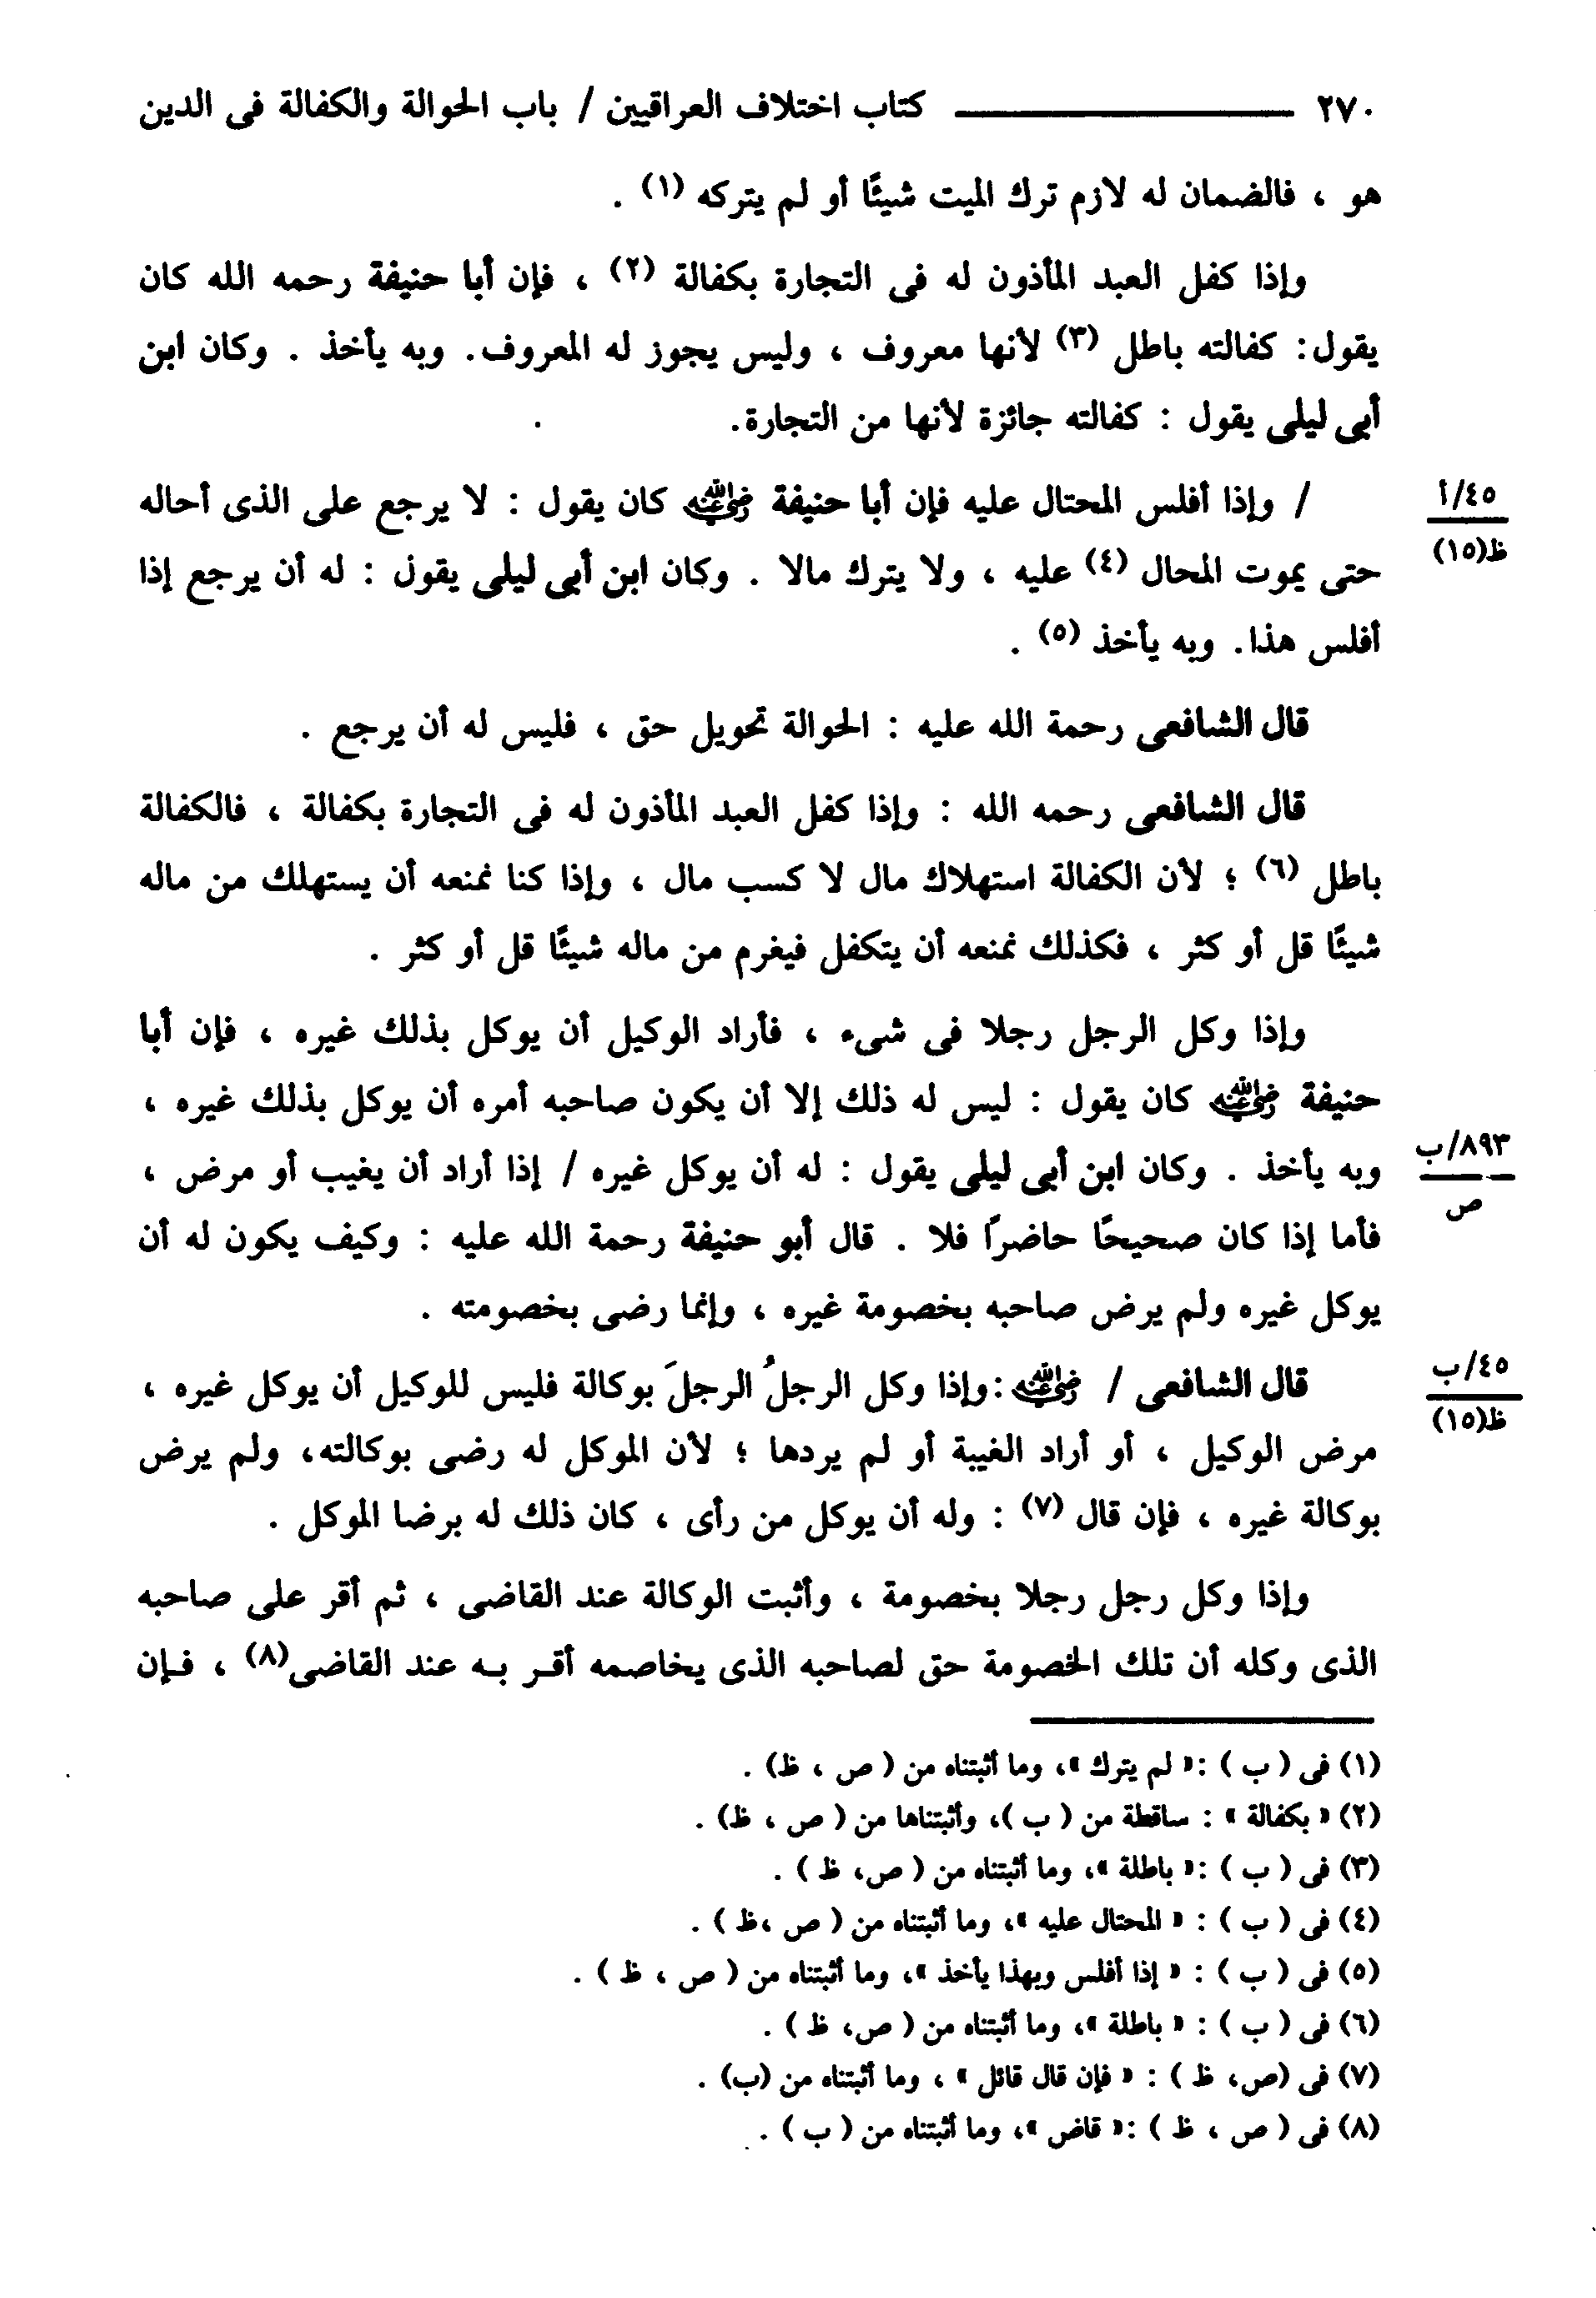 ٢٧٠ كتاب اختلاف العراقيين / باب الحوالة والكفالة فى الدين
هو ، فالضمان له لازم ترك الميت شيئًا أو لم يتركه (١) .
وإذا كفل العبد المأذون له فى التجارة بكفالة (٢) ، فإن أبا حنيفة رحمه الله كان
يقول: كفالته باطل (٣) لأنها معروف ، وليس يجوز له المعروف. وبه يأخذ . وكان ابن
أبى ليلى يقول : كفالته جائزة لأنها من التجارة.
٤٥/أ
ظ(١٥)
/ وإذا أفلس المحتال عليه فإن أبا حنيفة رضي الله عنه كان يقول : لا يرجع على الذى أحاله
حتى يموت المحال (٤) عليه ، ولا يترك مالا . وكان ابن أبى ليلى يقول : له أن يرجع إذا
أفلس هذا. وبه يأخذ (٥) .
قال الشافعى رحمة الله عليه : الحوالة تحويل حق ، فليس له أن يرجع .
قال الشافعى رحمه الله : وإذا كفل العبد المأذون له فى التجارة بكفالة ، فالكفالة
باطل (٦) ؛ لأن الكفالة استهلاك مال لا كسب مال ، وإذا كنا نمنعه أن يستهلك من ماله
شيئًا قل أو كثر ، فكذلك نمنعه أن يتكفل فيغرم من ماله شيئًا قل أو كثر .
وإذا وكل الرجل رجلا فى شىء ، فأراد الوكيل أن يوكل بذلك غيره ، فإن أبا
حنيفة رضي الله عنه كان يقول : ليس له ذلك إلا أن يكون صاحبه أمره أن يوكل بذلك غيره ،
٨٩٣/ب
ص
وبه يأخذ . وكان ابن أبى ليلى يقول : له أن يوكل غيره / إذا أراد أن يغيب أو مرض ،
فأما إذا كان صحيحًا حاضرًا فلا . قال أبو حنيفة رحمة الله عليه : وكيف يكون له أن
يوكل غيره ولم يرض صاحبه بخصومة غيره ، وإنما رضى بخصومته .
٤٥/ب
ظ(١٥)
قال الشافعى / رضي الله عنه :وإذا وكل الرجلُ الرجلَ بوكالة فليس للوكيل أن يوكل غيره ،
مرض الوكيل ، أو أراد الغيبة أو لم يردها ؛ لأن الموكل له رضى بوكالته، ولم يرض
بوكالة غيره ، فإن قال (٧) : وله أن يوكل من رأى ، كان ذلك له برضا الموكل .
وإذا وكل رجل رجلا بخصومة ، وأثبت الوكالة عند القاضى ، ثم أقر على صاحبه
الذى وكله أن تلك الخصومة حق لصاحبه الذى يخاصمه أقـر بـه عند القاضى(٨) ، فـإن
(١) فى ( ب ) :« لم يترك »، وما أثبتناه من ( ص ، ظ) .
(٢) « بكفالة » : ساقطة من ( ب )، وأثبتناها من ( ص ، ظ) .
(٣) فى ( ب ) :« باطلة »، وما أثبتناه من ( ص، ظ ) .
(٤) فى ( ب ) : « المحتال عليه »، وما أثبتناه من ( ص ،ظ ) .
(٥) فى ( ب ) : « إذا أفلس وبهذا يأخذ »، وما أثبتناه من ( ص ، ظ ) .
(٦) فى ( ب ) : « باطلة »، وما أثبتناه من ( ص، ظ ) .
(٧) فى (ص، ظ ) : « فإن قال قائل » ، وما أثبتناه من (ب) .
(٨) فى ( ص ، ظ ) :« قاض »، وما أثبتناه من ( ب ) .